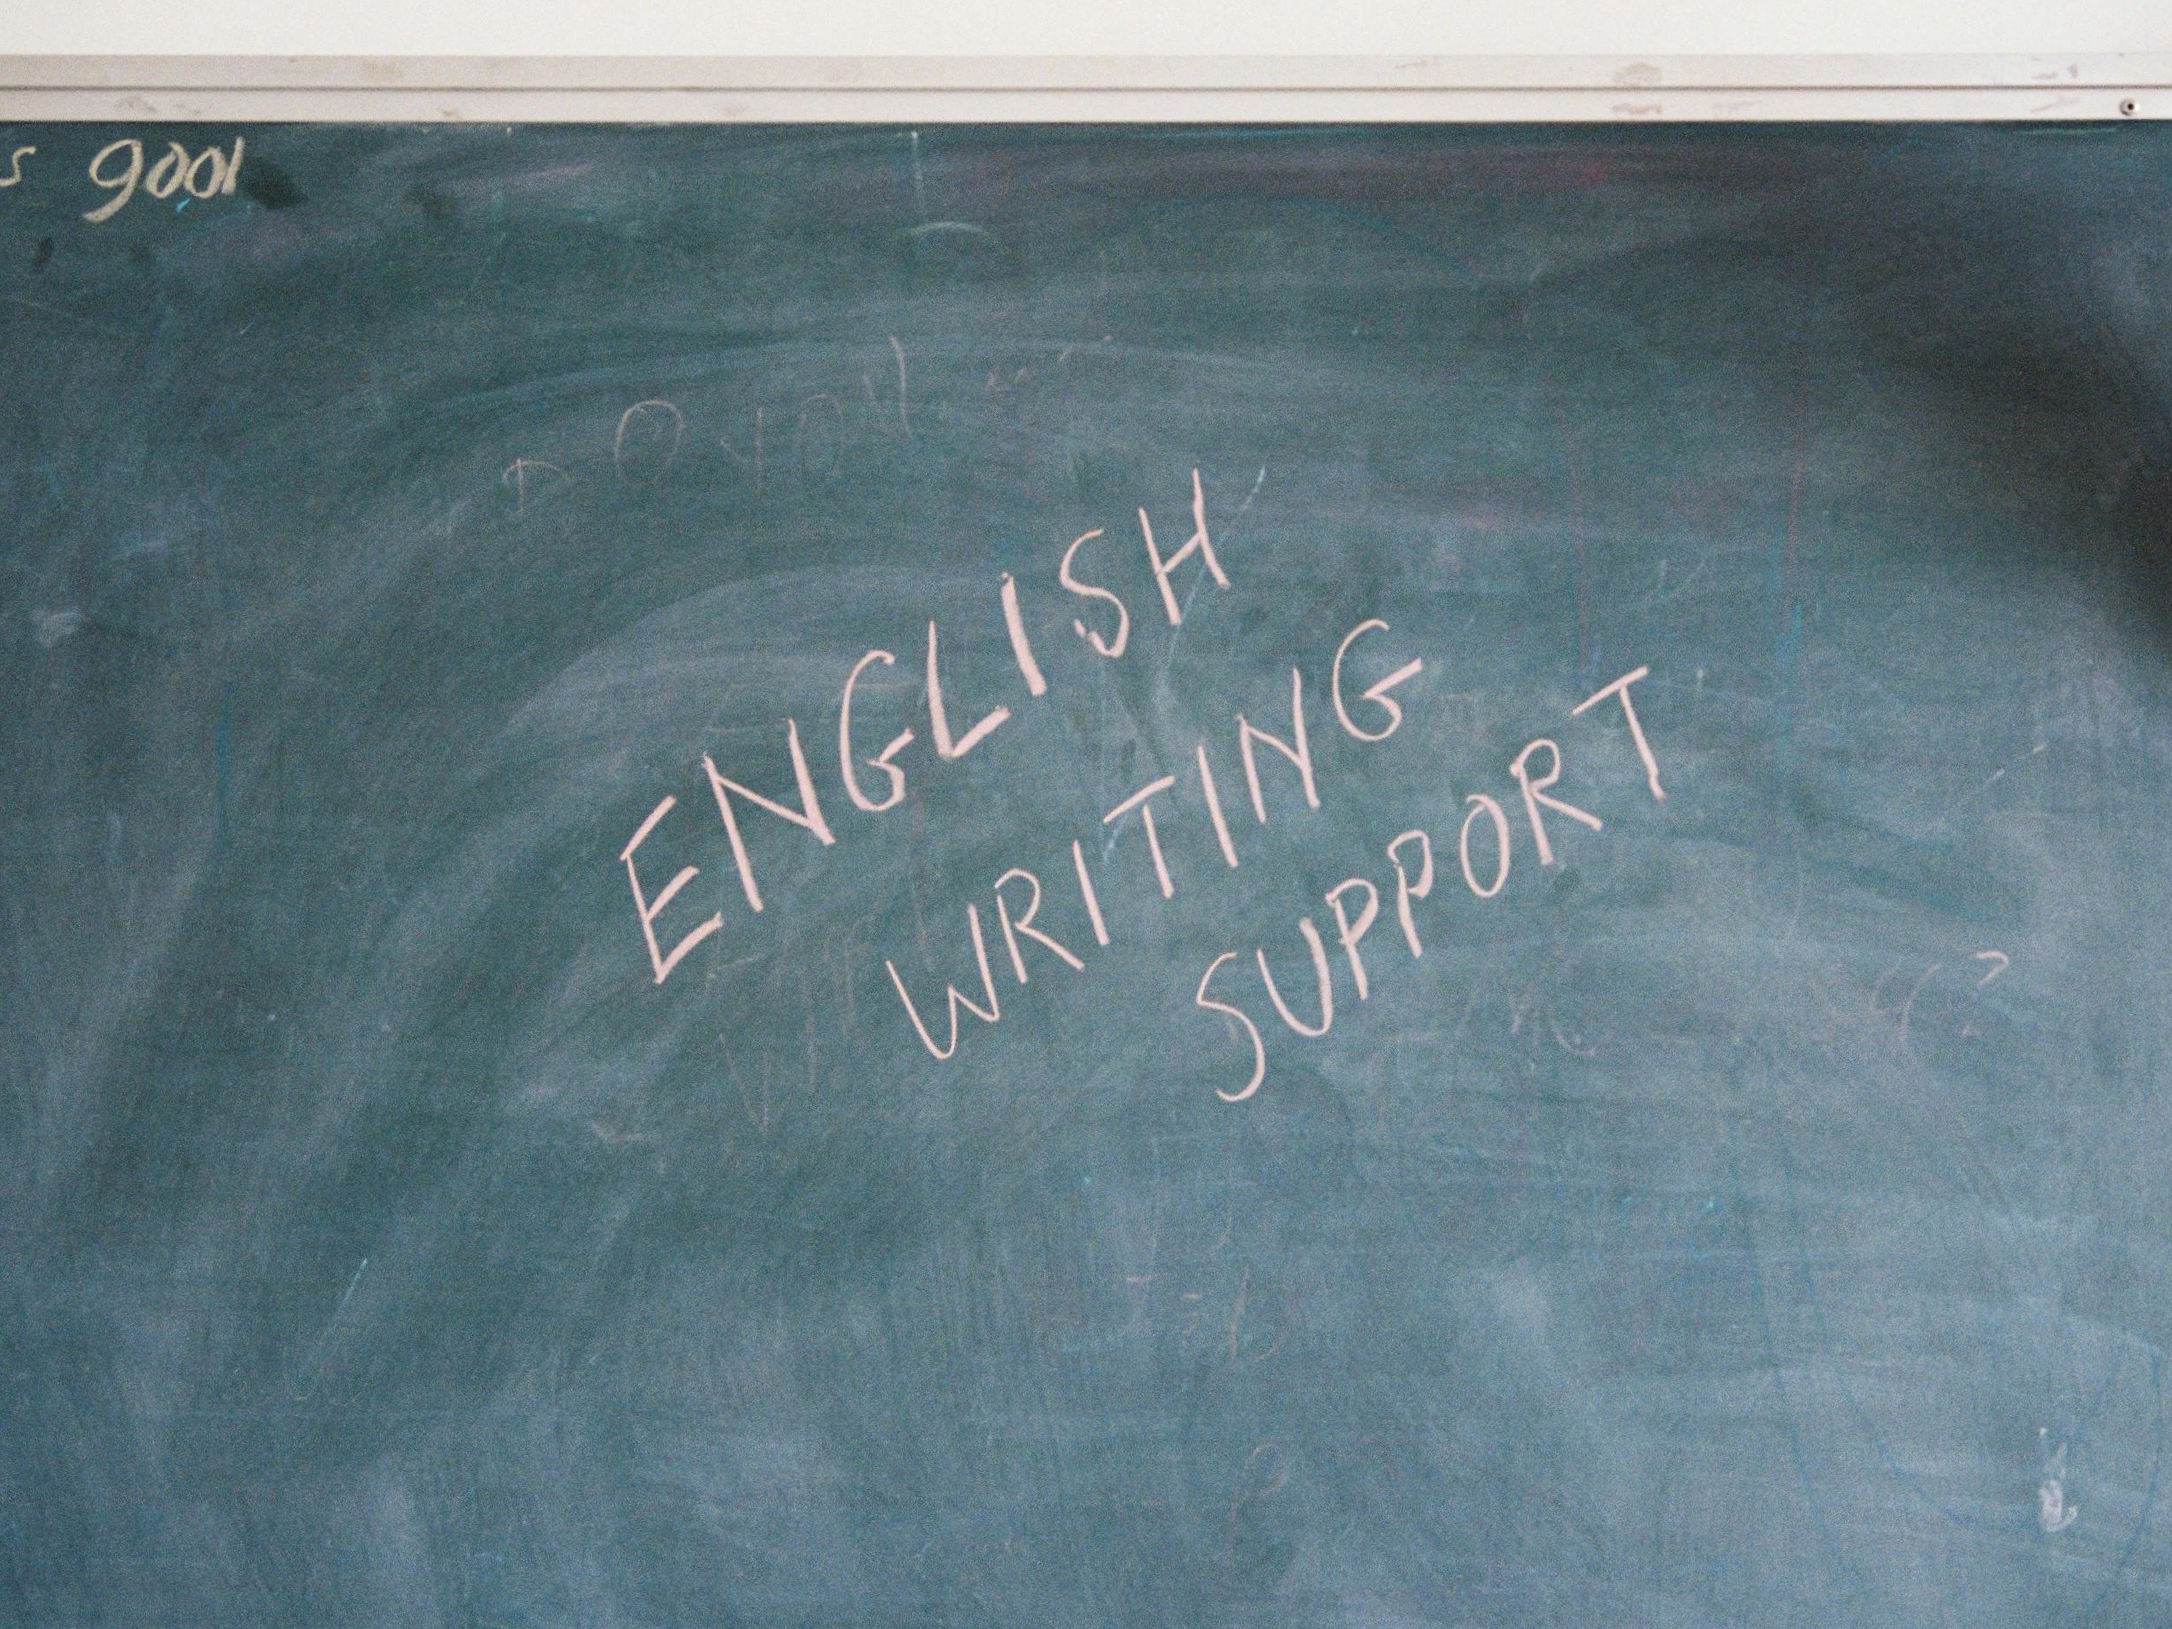 s gool
ENGLISH
WRITING
SUPPORT